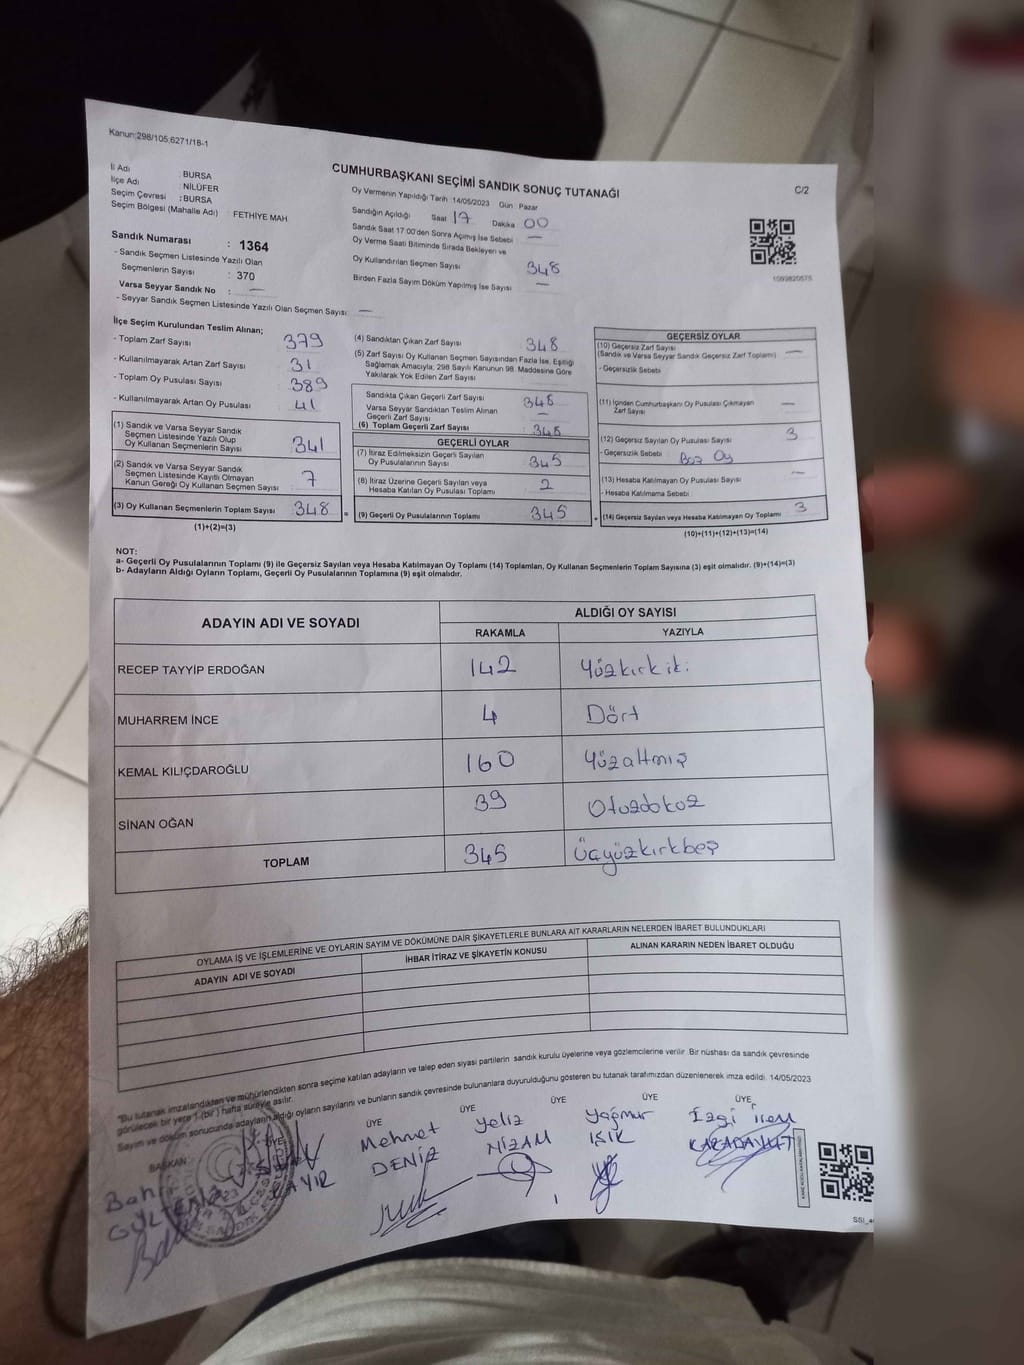 Kanun:298/105;6271/18-1
CUMHURBAŞKANI SEÇİMİ SANDIK SONUÇ TUTANAĞI
C/2
İl Adı : BURSA
İlçe Adı : NİLÜFER
Seçim Çevresi : BURSA
Seçim Bölgesi (Mahalle Adı) : FETHİYE MAH
Sandık Numarası : 1364
- Sandık Seçmen Listesinde Yazılı Olan
Seçmenlerin Sayısı : 370
Varsa Seyyar Sandık No : —
- Seyyar Sandık Seçmen Listesinde Yazılı Olan Seçmen Sayısı: —
Oy Vermenin Yapıldığı Tarih 14/05/2023 Gün Pazar
Sandığın Açıldığı Saat 17 Dakika 00
Sandık Saat 17:00'den Sonra Açılmış İse Sebebi : —
Oy Verme Saati Bitiminde Sırada Bekleyen ve
Oy Kullandırılan Seçmen Sayısı 348
Birden Fazla Sayım Döküm Yapılmış İse Sayısı : —
1069820575
İlçe Seçim Kurulundan Teslim Alınan;
- Toplam Zarf Sayısı : 379
- Kullanılmayarak Artan Zarf Sayısı : 31
- Toplam Oy Pusulası Sayısı : 389
- Kullanılmayarak Artan Oy Pusulası : 41
(1) Sandık ve Varsa Seyyar Sandık
Seçmen Listesinde Yazılı Olup
Oy Kullanan Seçmenlerin Sayısı : 341
(2) Sandık ve Varsa Seyyar Sandık
Seçmen Listesinde Kayıtlı Olmayan
Kanun Gereği Oy Kullanan Seçmen Sayısı : 7
(3) Oy Kullanan Seçmenlerin Toplam Sayısı : 348
(1)+(2)=(3)
(4) Sandıktan Çıkan Zarf Sayısı : 348
(5) Zarf Sayısı Oy Kullanan Seçmen Sayısından Fazla İse, Eşitliği
Sağlamak Amacıyla; 298 Sayılı Kanunun 98. Maddesine Göre
Yakılarak Yok Edilen Zarf Sayısı :
Sandıkta Çıkan Geçerli Zarf Sayısı : 348
Varsa Seyyar Sandıktan Teslim Alınan
Geçerli Zarf Sayısı : —
(6) Toplam Geçerli Zarf Sayısı : 348
GEÇERLİ OYLAR
(7) İtiraz Edilmeksizin Geçerli Sayılan
Oy Pusulalarının Sayısı : 345
(8) İtiraz Üzerine Geçerli Sayılan veya
Hesaba Katılan Oy Pusulası Toplamı : 2
(9) Geçerli Oy Pusulalarının Toplamı : 345
GEÇERSİZ OYLAR
(10) Geçersiz Zarf Sayısı
(Sandık ve Varsa Seyyar Sandık Geçersiz Zarf Toplamı) : —
- Geçersizlik Sebebi :
(11) İçinden Cumhurbaşkanı Oy Pusulası Çıkmayan
Zarf Sayısı : —
(12) Geçersiz Sayılan Oy Pusulası Sayısı : 3
- Geçersizlik Sebebi : Boş Oy
(13) Hesaba Katılmayan Oy Pusulası Sayısı : —
- Hesaba Katılmama Sebebi :
(14) Geçersiz Sayılan veya Hesaba Katılmayan Oy Toplamı : 3
(10)+(11)+(12)+(13)=(14)
NOT:
a- Geçerli Oy Pusulalarının Toplamı (9) ile Geçersiz Sayılan veya Hesaba Katılmayan Oy Toplamı (14) Toplamları, Oy Kullanan Seçmenlerin Toplam Sayısına (3) eşit olmalıdır. (9)+(14)=(3)
b- Adayların Aldığı Oyların Toplamı, Geçerli Oy Pusulalarının Toplamına (9) eşit olmalıdır.
ADAYIN ADI VE SOYADI ALDIĞI OY SAYISI
RAKAMLA YAZIYLA
RECEP TAYYİP ERDOĞAN 142 Yüzkırkiki
MUHARREM İNCE 4 Dört
KEMAL KILIÇDAROĞLU 160 Yüzaltmış
SİNAN OĞAN 39 Otuzdokuz
TOPLAM 345 Üçyüzkırkbeş
OYLAMA İŞ VE İŞLEMLERİNE VE OYLARIN SAYIM VE DÖKÜMÜNE DAİR ŞİKAYETLERLE BUNLARA AİT KARARLARIN NELERDEN İBARET BULUNDUKLARI
ADAYIN ADI VE SOYADI İHBAR İTİRAZ VE ŞİKAYETİN KONUSU ALINAN KARARIN NEDEN İBARET OLDUĞU
"Bu tutanak imzalandıktan ve mühürlendikten sonra seçime katılan adayların ve talep eden siyasi partilerin sandık kurulu üyelerine veya gözlemcilerine verilir. Bir nüshası da sandık çevresinde
görülecek bir yere 1 (bir) hafta süreyle asılır.
Sayım ve döküm sonucunda adayların aldığı oyların sayılarını ve bunların sandık çevresinde bulunanlara duyurulduğunu gösteren bu tutanak tarafımızdan düzenlenerek imza edildi. 14/05/2023
BAŞKAN ÜYE ÜYE ÜYE ÜYE ÜYE
Mehmet DENİZ
Yeliz NİZAM
Yağmur IŞIK